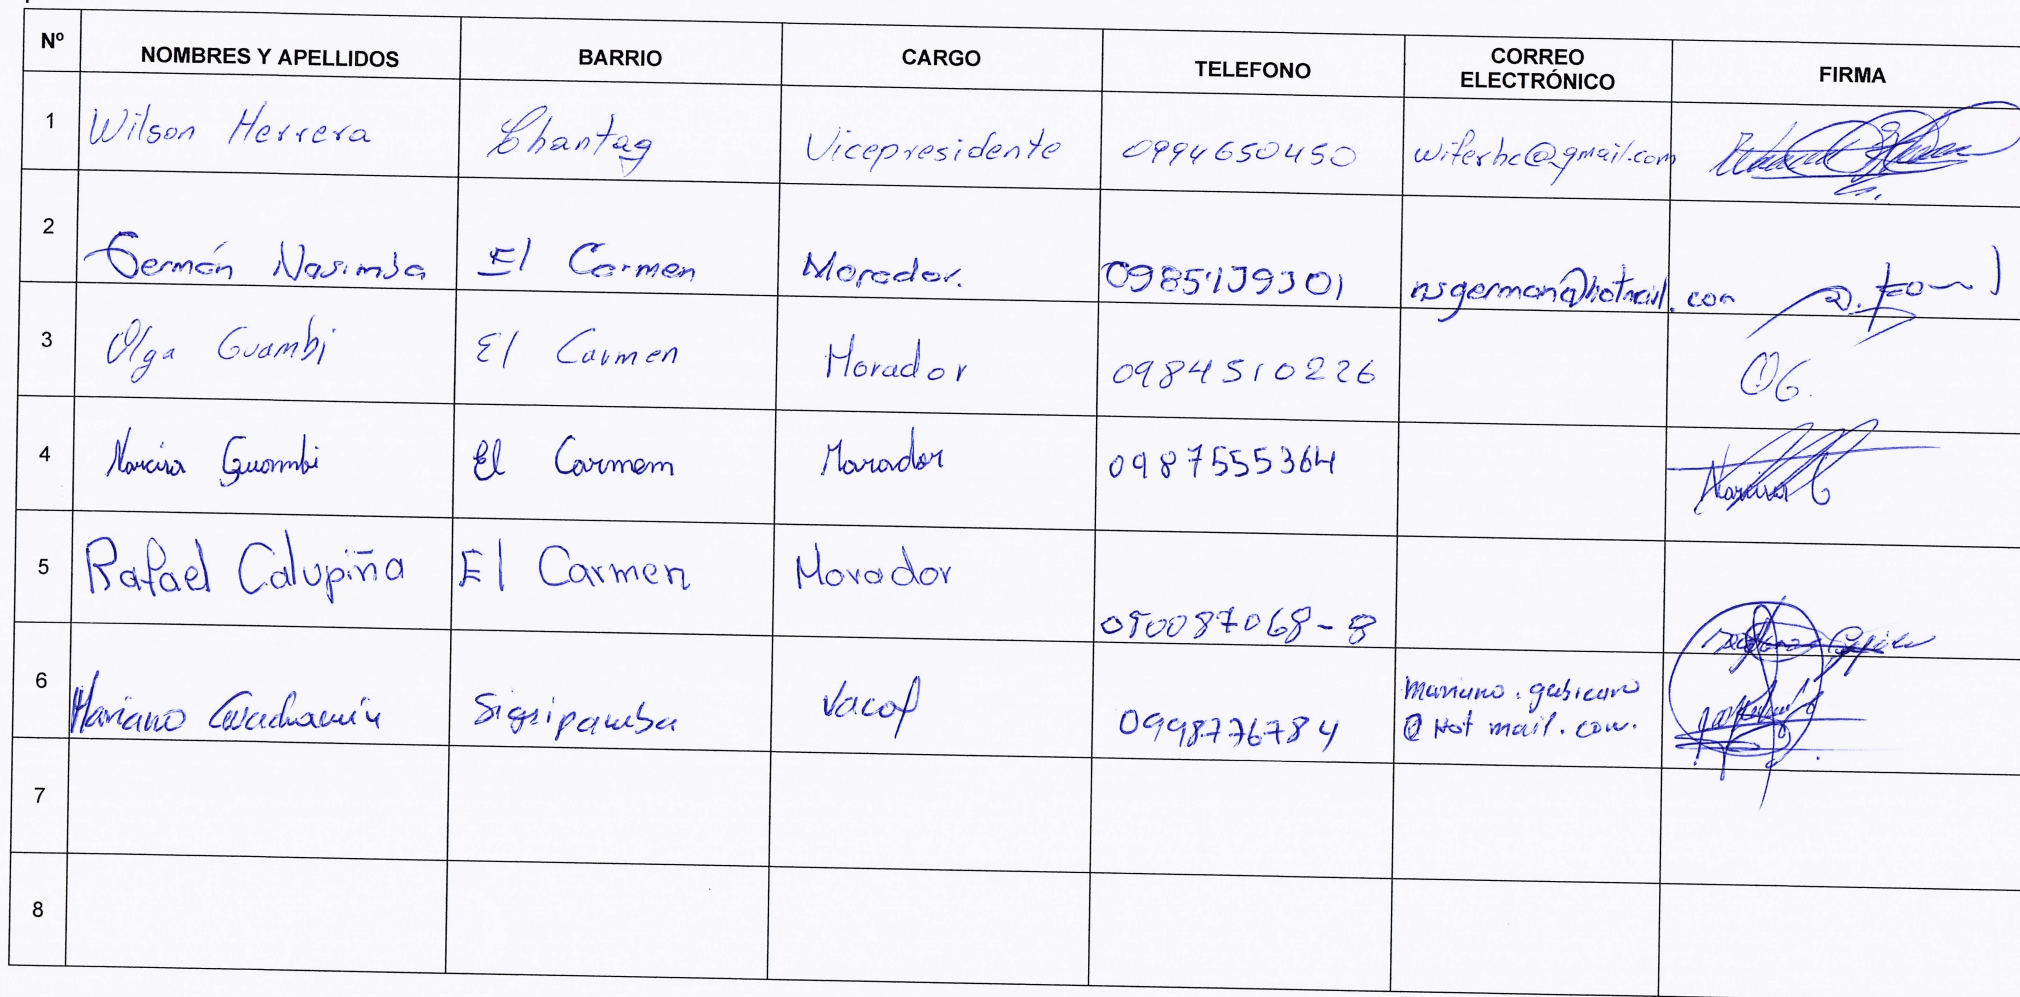 Nº NOMBRES Y APELLIDOS BARRIO CARGO TELEFONO CORREO ELECTRÓNICO FIRMA
1 Wilson Herrera Chantag Vicepresidente 0994650450 wiferhc@gmail.com
2 Germán Nasimba El Carmen Morador. nsgerman@hotmail.com
3 Olga Guambi El Carmen Morador 0984510226 OG.
4 Narcisa Guambi El Carmem Morador 0987555364 Narcisa G
5 Rafael Calupiña El Carmen Morador 050087068-8
6 Mariano Sigsipamba Vocal 0998776784 mariano.gabicaro
@Hotmail.com.
7
8